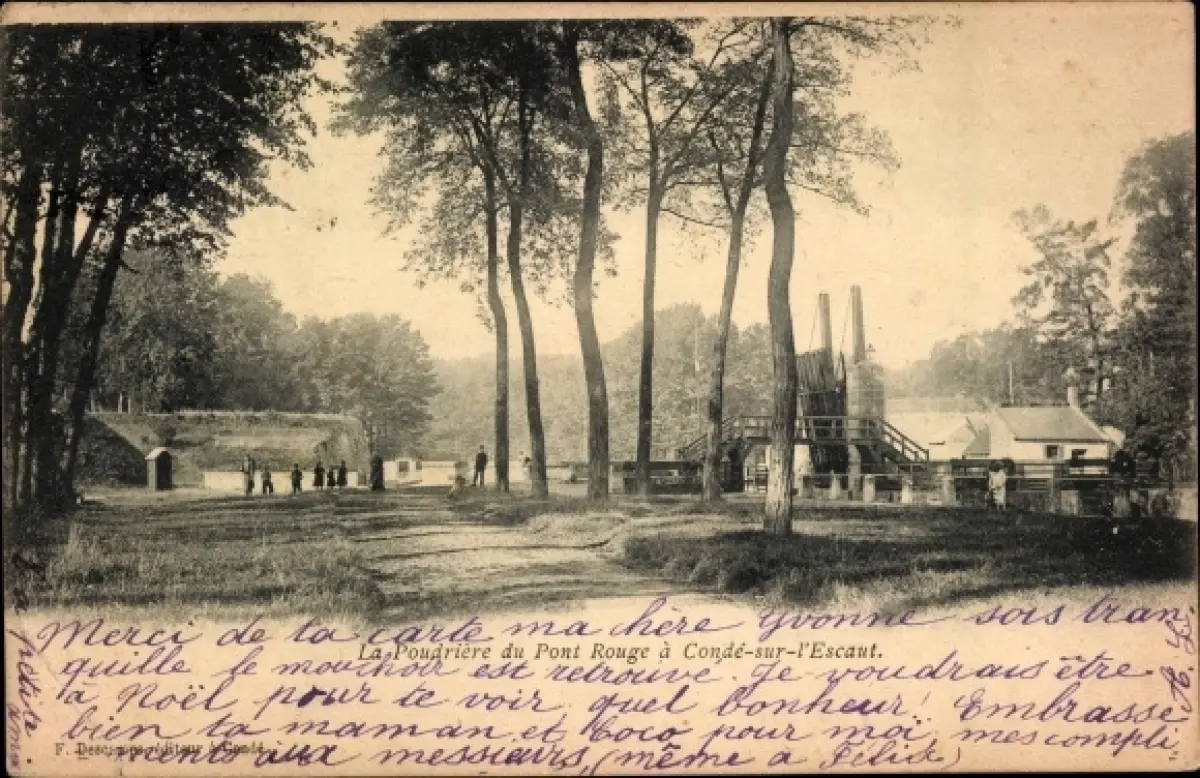 Merci de la carte ma chère Yvonne sois tran
La Poudrière du Pont Rouge à Condé-sur-l'Escaut.
quille le mouchoir est retrouve. Je voudrais être
à Noël pour te voir quel bonheur! Embrasse
bien ta maman et Coco pour moi, mes compli
F. Descamps, éditeur à Condé.
ments aux messieurs, (même a Félix)
petite